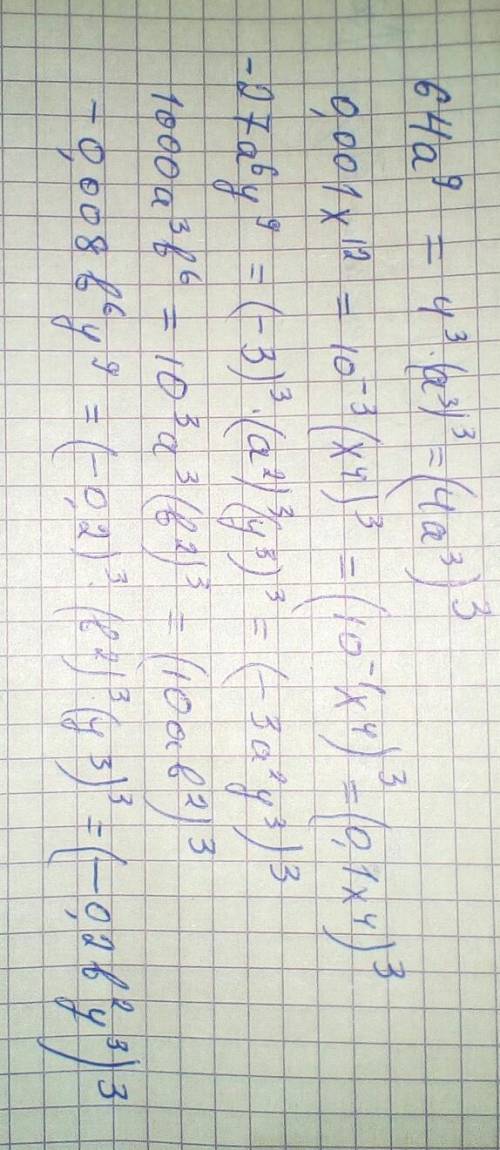 64a⁹ = 4³·(a³)³ = (4a³)³
0,001x¹² = 10⁻³(x⁴)³ = (10⁻¹x⁴)³ = (0,1x⁴)³
-27a⁶y⁹ = (-3)³·(a²)³(y³)³ = (-3a²y³)³
1000a³b⁶ = 10³a³(b²)³ = (10ab²)³
-0,008b⁶y⁹ = (-0,2)³·(b²)³·(y³)³ = (-0,2b²y³)³